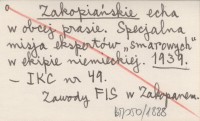 Zakopiańskie echa
w obcej prasie. Specjalna
misja ekspertów „smarowych"
w ekipie niemieckiej. 1939.
— IKC nr 49.
Zawody FIS w Zakopanem.